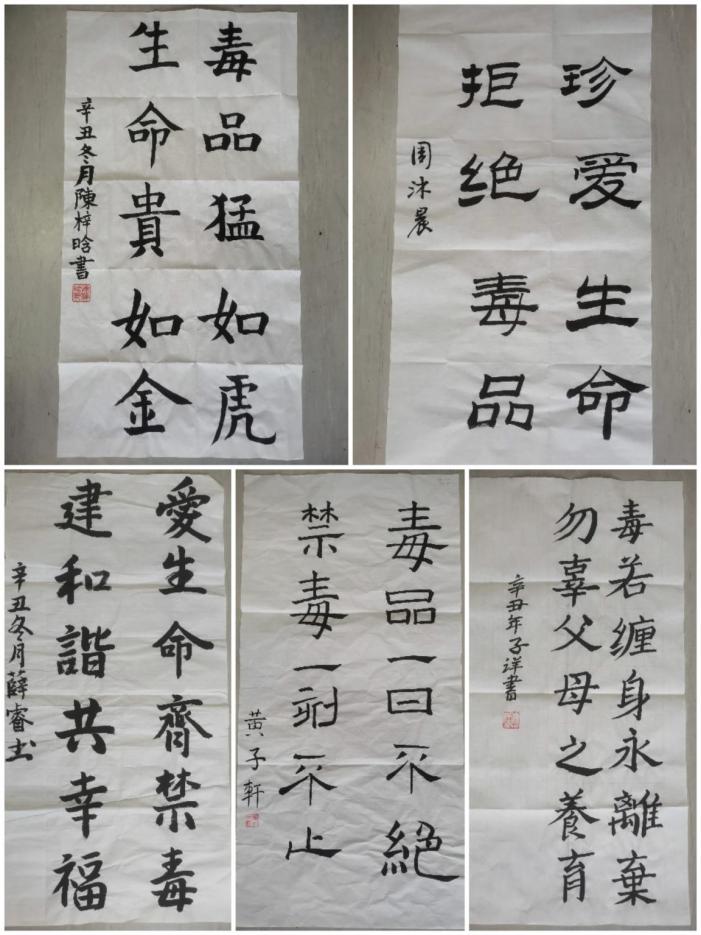 毒品猛如虎
生命貴如金
辛丑冬月陳梓晗書
珍爱生命
拒绝毒品
周沐晨
愛生命齊禁毒
建和諧共幸福
辛丑冬月薛睿书
毒品一日不絕
禁毒一刻不止
黄子軒
毒若缠身永離棄
勿辜父母之養育
辛丑年子洋書